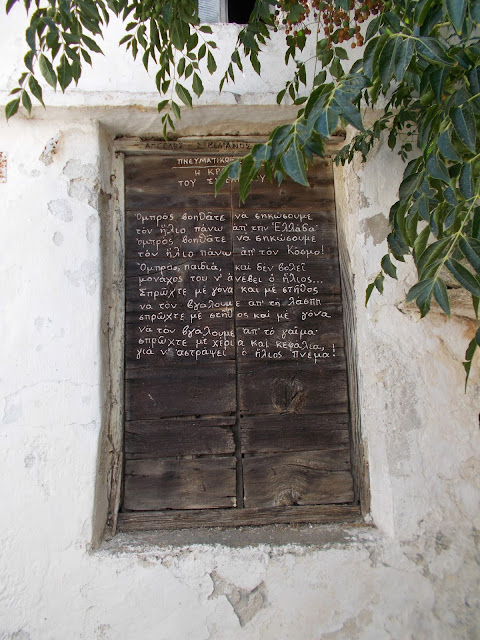 ΑΓΓΕΛΟΣ ΣΙΚΕΛΙΑΝΟΣ
ΠΝΕΥΜΑΤΙΚΟ
Η
ΤΟΥ
Ομπρός βοηθάτε να σηκώσουμε
τὸν ἥλιο πάνω ἀπ' τὴν Ἑλλάδα·
ὀμπρός βοηθάτε να σηκώσουμε
τὸν ἥλιο πάνω ἀπ' τὸν Κόσμο!
Ὀμπρός, παιδιά, καὶ δὲν βολεῖ
μονάχος του ν' ἀνέβει ὁ ἥλιος...
Σπρῶχτε μὲ γόνα καὶ μὲ στῆθος
νὰ τὸν βγάλουμε ἀπ' τὴ λάσπη
σπρῶχτε μὲ στῆθος καὶ μὲ γόνα,
νὰ τὸν βγάλουμε ἀπ' τὸ γαῖμα·
σπρῶχτε μὲ χέρια καὶ κεφάλια,
γιὰ ν' ἀστράψει ὁ ἥλιος Πνέμα!